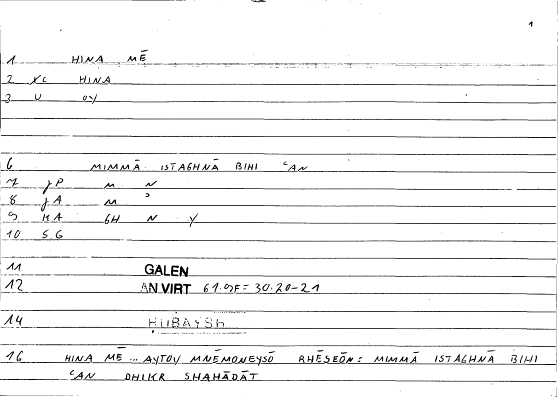 1
1 HINA MĒ
2 XC HINA
3 U OY
6 MIMMĀ ISTAGHNĀ BIHI ʿAN
7 JP M N
8 JA M ʾ
9 KA GH N Y
10 SG
11 GALEN
12 AN VIRT 61.9F = 30.20-21
14 HUBAYSh
16 HINA MĒ ... AYTOY MNĒMONEYSŌ RHĒSEŌN : MIMMĀ ISTAGHNĀ BIHI
ʿAN DHIKR SHAHĀDĀT